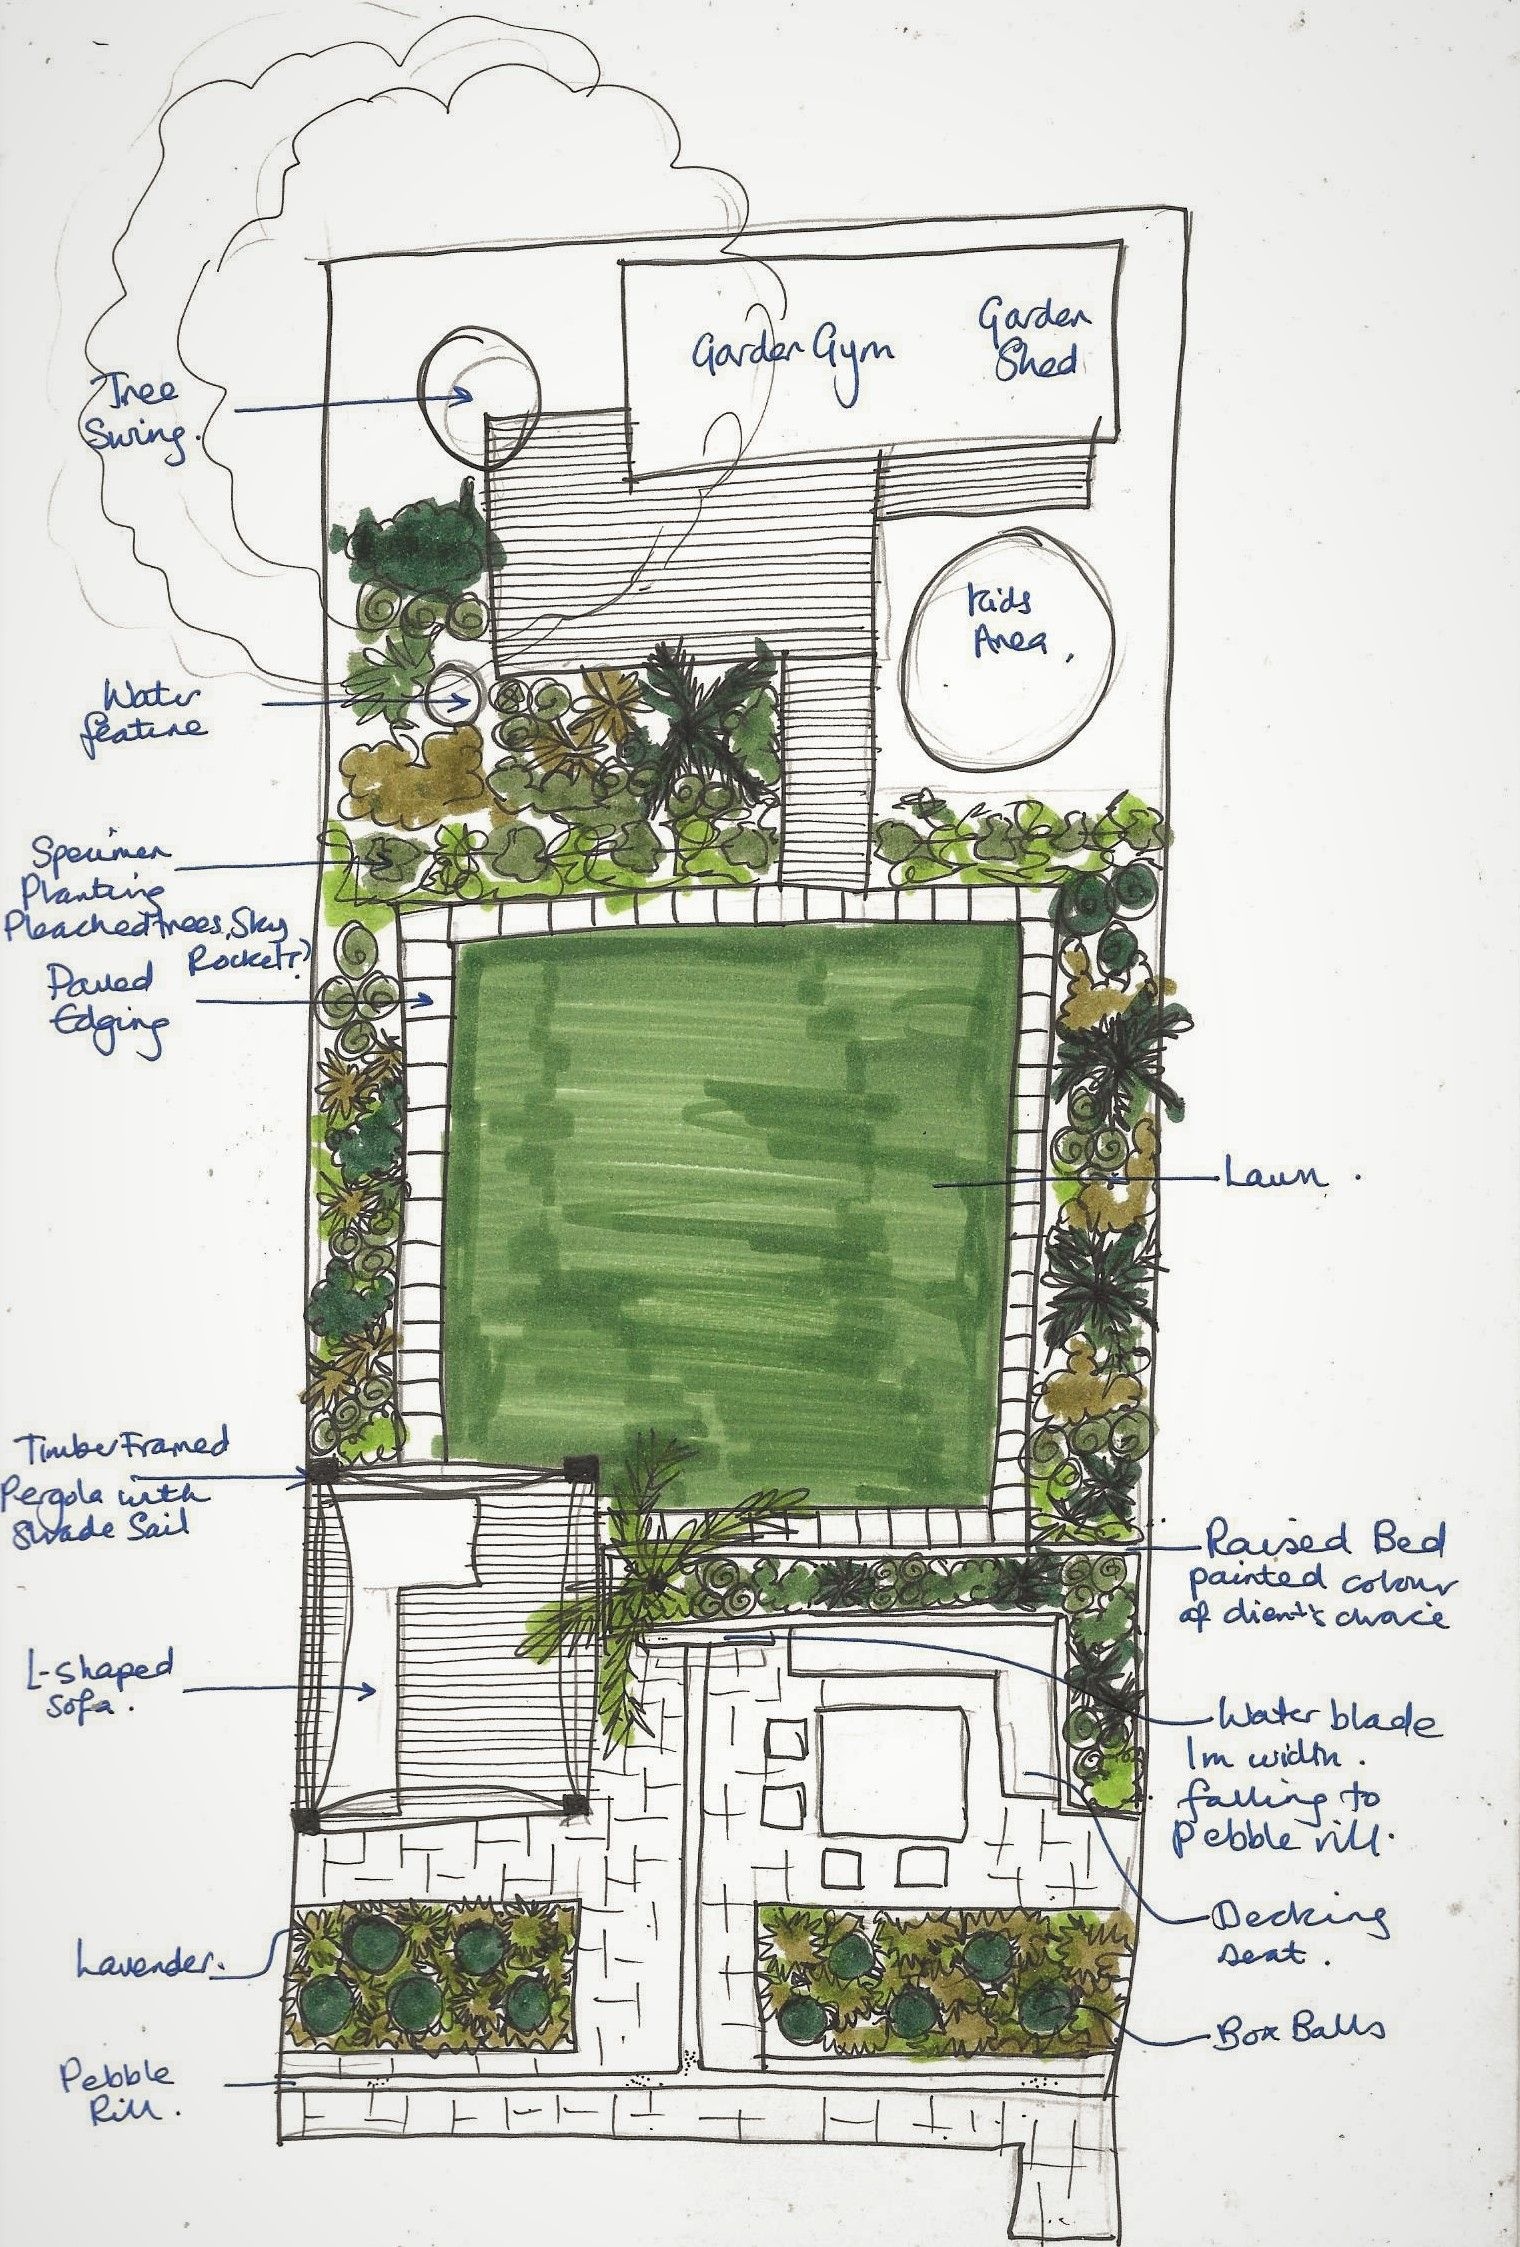 Garden Gym
Garden
Shed
Tree
Swing.
Kids
Area.
Water
feature
Specimen
Planting
Pleached trees, Sky
Rocket?)
Paved
Edging
Lawn.
Timber Framed
Pergola with
Shade Sail
Raised Bed
painted colour
of client's choice
L-shaped
Sofa.
Water blade
1m width.
falling to
Pebble rill.
Decking
seat.
Lavender.
Box Balls
Pebble
Rill.